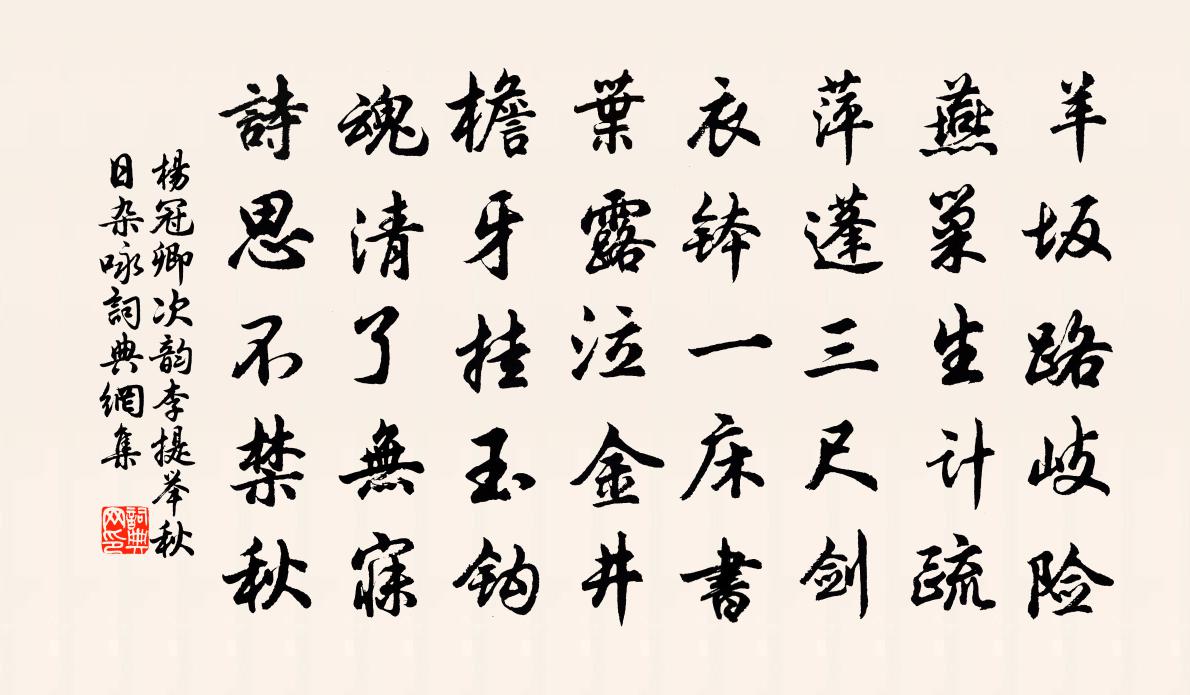 羊坂路歧险
燕巢生计疏
萍蓬三尺剑
衣钵一床書
葉露泣金井
檐牙挂玉钩
魂清了無寐
詩思不禁秋
楊冠卿次韵李提举秋
日杂咏詞典網集
詞典
网印